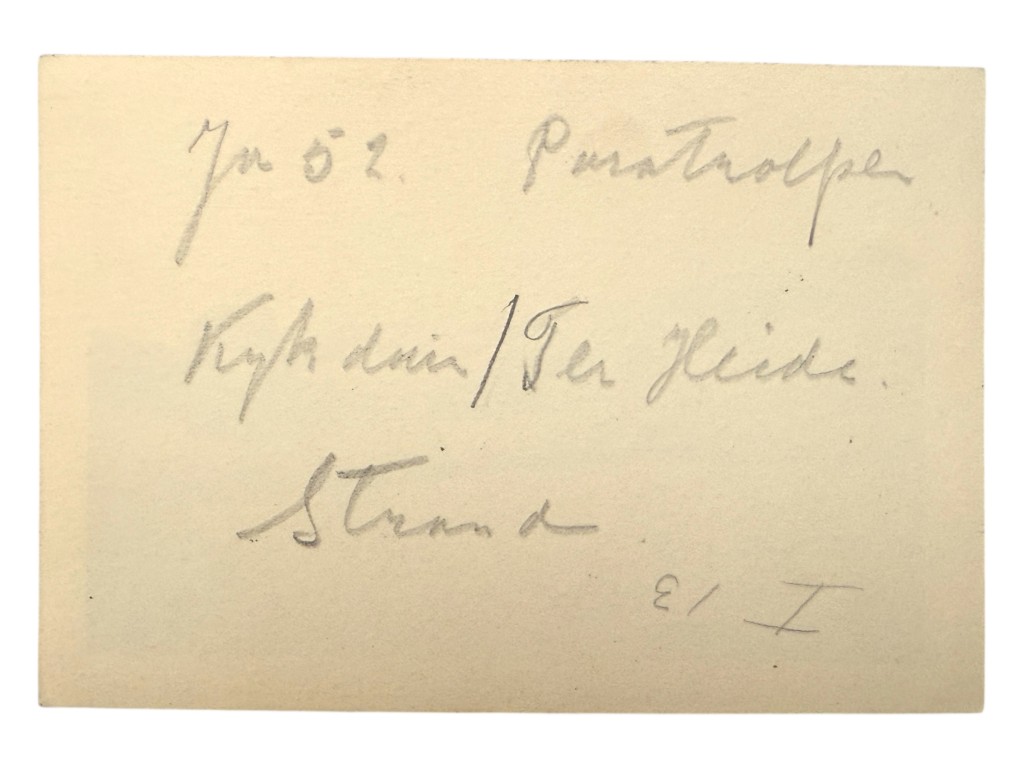 Ju 52 Paratrolper
Kykduin/Ter Heide.
Strand
I 13